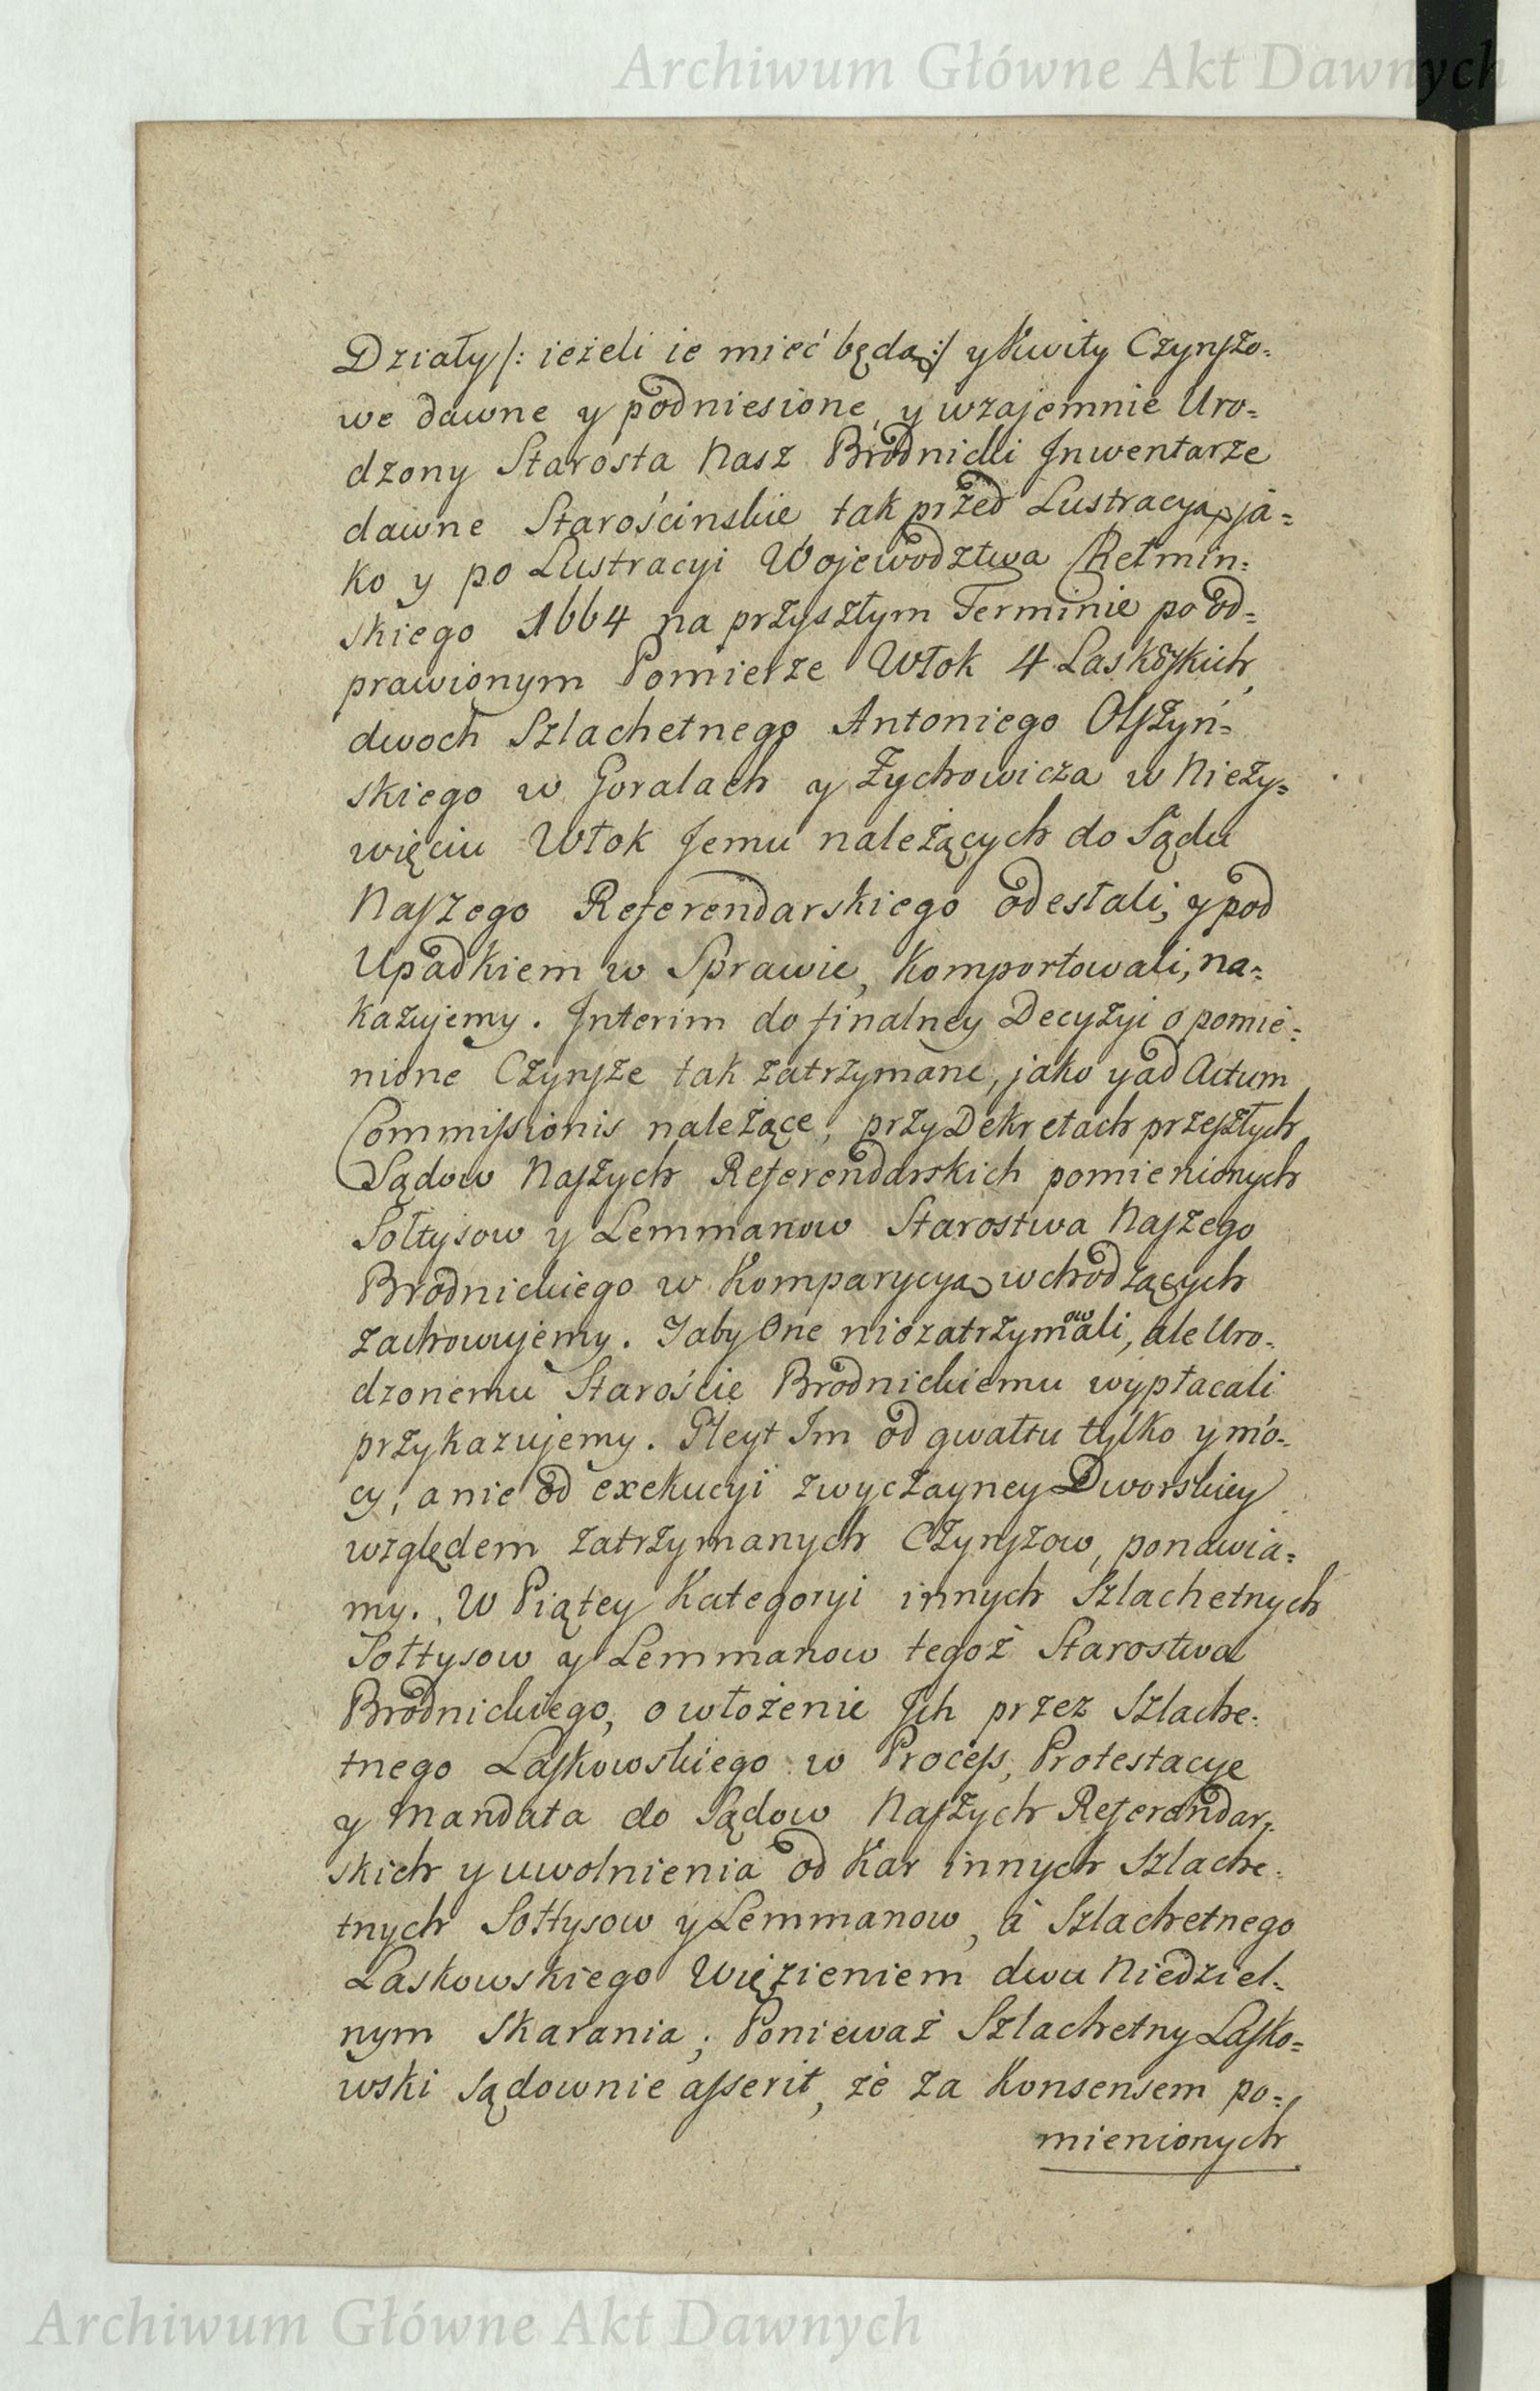 Archiwum Główne Akt Dawnych
Działy /: ieżeli ie mieć będą :/ y Kwity Czynszo=
we dawne y podniesione, y wzajemnie Uro=
dzony Starosta Nasz Brodnicki Inwentarze
dawne Starościnskie tak przed Lustracyą, ja=
ko y po Lustracyi Wojewodztwa Chełmin=
skiego 1664 na przyszłym Terminie po od=
prawionym Pomierze Włok 4 Laskowskich,
dwoch Szlachetnego Antoniego Olszyń=
skiego w Goralach y Zychowicza w Nieży=
więciu Włok Jemu należących do Sądu
Naszego Referendarskiego odesłali, y pod
Upadkiem w Sprawie, Komportowali, na=
kazujemy. Interim do finalney Decyzyi o pomie=
nione Czynsze tak zatrzymane, jako y ad Actum
Commissionis należące, przy Dekretach przeszłych
Sądow Naszych Referendarskich pomienionych
Sołtysow y Lemmanow Starostwa Naszego
Brodnickiego w Komparycyą wchodzących
zachowujemy. Iaby One niezatrzymowali, ale Uro=
dzonemu Staroście Brodnickiemu wypłacali
przykazujemy. Gleyt Im od gwałtu tylko y mo=
cy, a nie od exekucyi zwyczayney Dworskiey
względem zatrzymanych Czynszow, ponawia=
my. W Piątey Kategoryi innych Szlachetnych
Sołtysow y Lemmanow tegoż Starostwa
Brodnickiego, o włożenie Ich przez Szlache=
tnego Laskowskiego w Process, Protestacye
y Mandata do Sądow Naszych Referendar=
skich y uwolnienia od Kar innych Szlache=
tnych Sołtysow y Lemmanow, a Szlachetnego
Laskowskiego Więzieniem dwu Niedziel=
nym Skarania; Ponieważ Szlachetny Lasko=
wski sądownie asserit, że za Konsensem po=
mienionych
Archiwum Główne Akt Dawnych